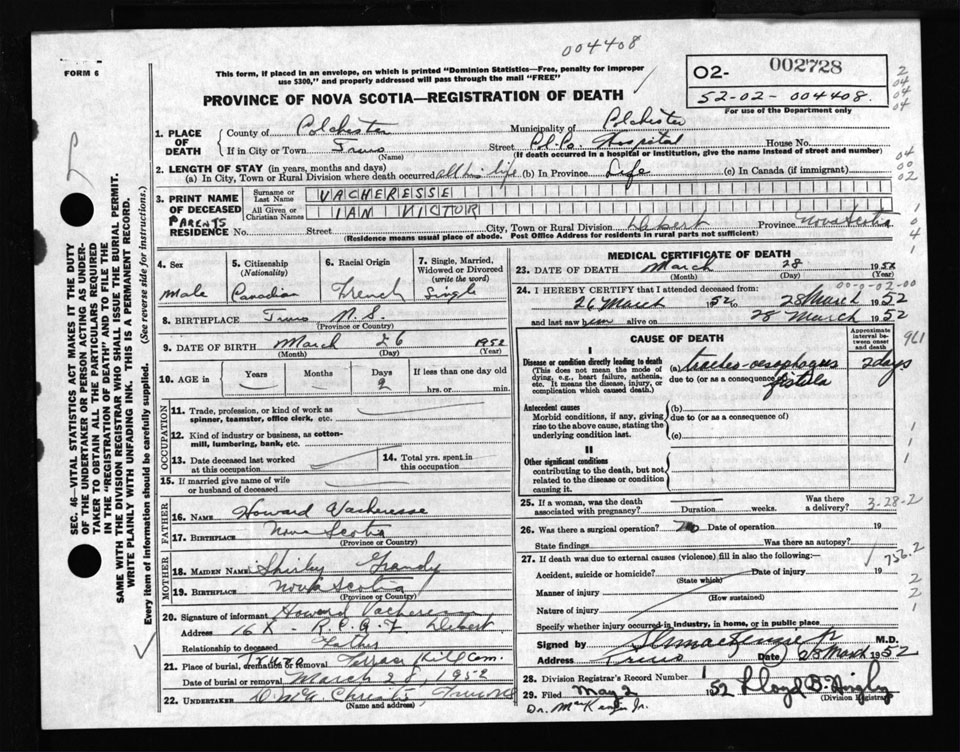 004408
FORM 6
This form, if placed in an envelope, on which is printed "Dominion Statistics—Free, penalty for improper
use $300," and properly addressed will pass through the mail "FREE"
02- 002728
52-02-004408.
For use of the Department only
2
04
04
04
PROVINCE OF NOVA SCOTIA—REGISTRATION OF DEATH
1. PLACE OF DEATH
County of Colchester Municipality of Colchester
If in City or Town Truro (Name) Street Hospital House No.
(If death occurred in a hospital or institution, give the name instead of street and number)
2. LENGTH OF STAY (in years, months and days)
(a) In City, Town or Rural Division where death occurred all his life (b) In Province Life (c) In Canada (if immigrant)
04
00
02
3. PRINT NAME OF DECEASED
Surname or Last Name VACHERESSE
All Given or Christian Names IAN VICTOR
PARENTS
RESIDENCE No. Street City, Town or Rural Division Debert Province Nova Scotia
(Residence means usual place of abode. Post Office Address for residents in rural parts not sufficient)
SEC. 46—VITAL STATISTICS ACT MAKES IT THE DUTY
OF THE UNDERTAKER OR PERSON ACTING AS UNDER-
TAKER TO OBTAIN ALL THE PARTICULARS REQUIRED
IN THE "REGISTRATION OF DEATH" AND TO FILE THE
SAME WITH THE DIVISION REGISTRAR WHO SHALL ISSUE THE BURIAL PERMIT.
WRITE PLAINLY WITH UNFADING INK. THIS IS A PERMANENT RECORD.
Every item of information should be carefully supplied. (See reverse side for instructions.)
4. Sex
Male
5. Citizenship (Nationality)
Canadian
6. Racial Origin
French
7. Single, Married, Widowed or Divorced (write the word)
Single
8. BIRTHPLACE Truro N.S.
(Province or Country)
9. DATE OF BIRTH March 26 1952
(Month) (Day) (Year)
10. AGE Years Months Days 2 If less than one day old
hrs. or min.
OCCUPATION
11. Trade, profession, or kind of work as
spinner, teamster, office clerk, etc.
12. Kind of industry or business, as cotton-
mill, lumbering, bank, etc.
13. Date deceased last worked
at this occupation
14. Total yrs. spent in
this occupation
15. If married give name of wife
or husband of deceased
FATHER
16. Name Howard Vacheresse
17. Birthplace Nova Scotia
(Province or Country)
MOTHER
18. MAIDEN NAME Shirley Grandy
19. BIRTHPLACE Nova Scotia
(Province or Country)
20. Signature of informant Howard Vacheresse
Address 16X - R.C.A.F Debert
Relationship to deceased Father
21. Place of burial, cremation or removal Truro Terrace Hill Cem.
Date of burial or removal March 1952
22. UNDERTAKER Christie, Truro NS
(Name, Address)
MEDICAL CERTIFICATE OF DEATH
23. DATE OF DEATH March 28 1952
(Month) (Day) (Year)
24. I HEREBY CERTIFY that I attended deceased from:
00-0-02-00
26 March 1952 to 28 March 1952
and last saw him alive on 28 March 1952
CAUSE OF DEATH
Approximate interval between onset and death
961
I
Disease or condition directly leading to death
(This does not mean the mode of dying, e.g., heart failure, asthenia, etc. It means the disease, injury, or complication which caused death.)
(a) tracheo-oesophagus 2 days
due to (or as a consequence of) fistula
Antecedent causes
Morbid conditions, if any, giving rise to the above cause, stating the underlying condition last.
(b)
due to (or as a consequence of)
(c)
II
Other significant conditions
contributing to the death, but not related to the disease or condition causing it.
25. If a woman, was the death associated with pregnancy? Duration weeks. Was there a delivery?
3-28-2
26. Was there a surgical operation? No Date of operation 19
State findings Was there an autopsy?
27. If death was due to external causes (violence) fill in also the following:—
756.2
Accident, suicide or homicide? Date of injury 19
(State which)
Manner of injury
(How sustained)
Nature of injury
Specify whether injury occurred in industry, in home, or in public place
Signed by M.D.
Address Truro Date 28 March 1952
28. Division Registrar's Record Number 1
29. Filed May 2 1952 Lloyd B.
(Division Registrar)
Dr. MacKenzie Jr.